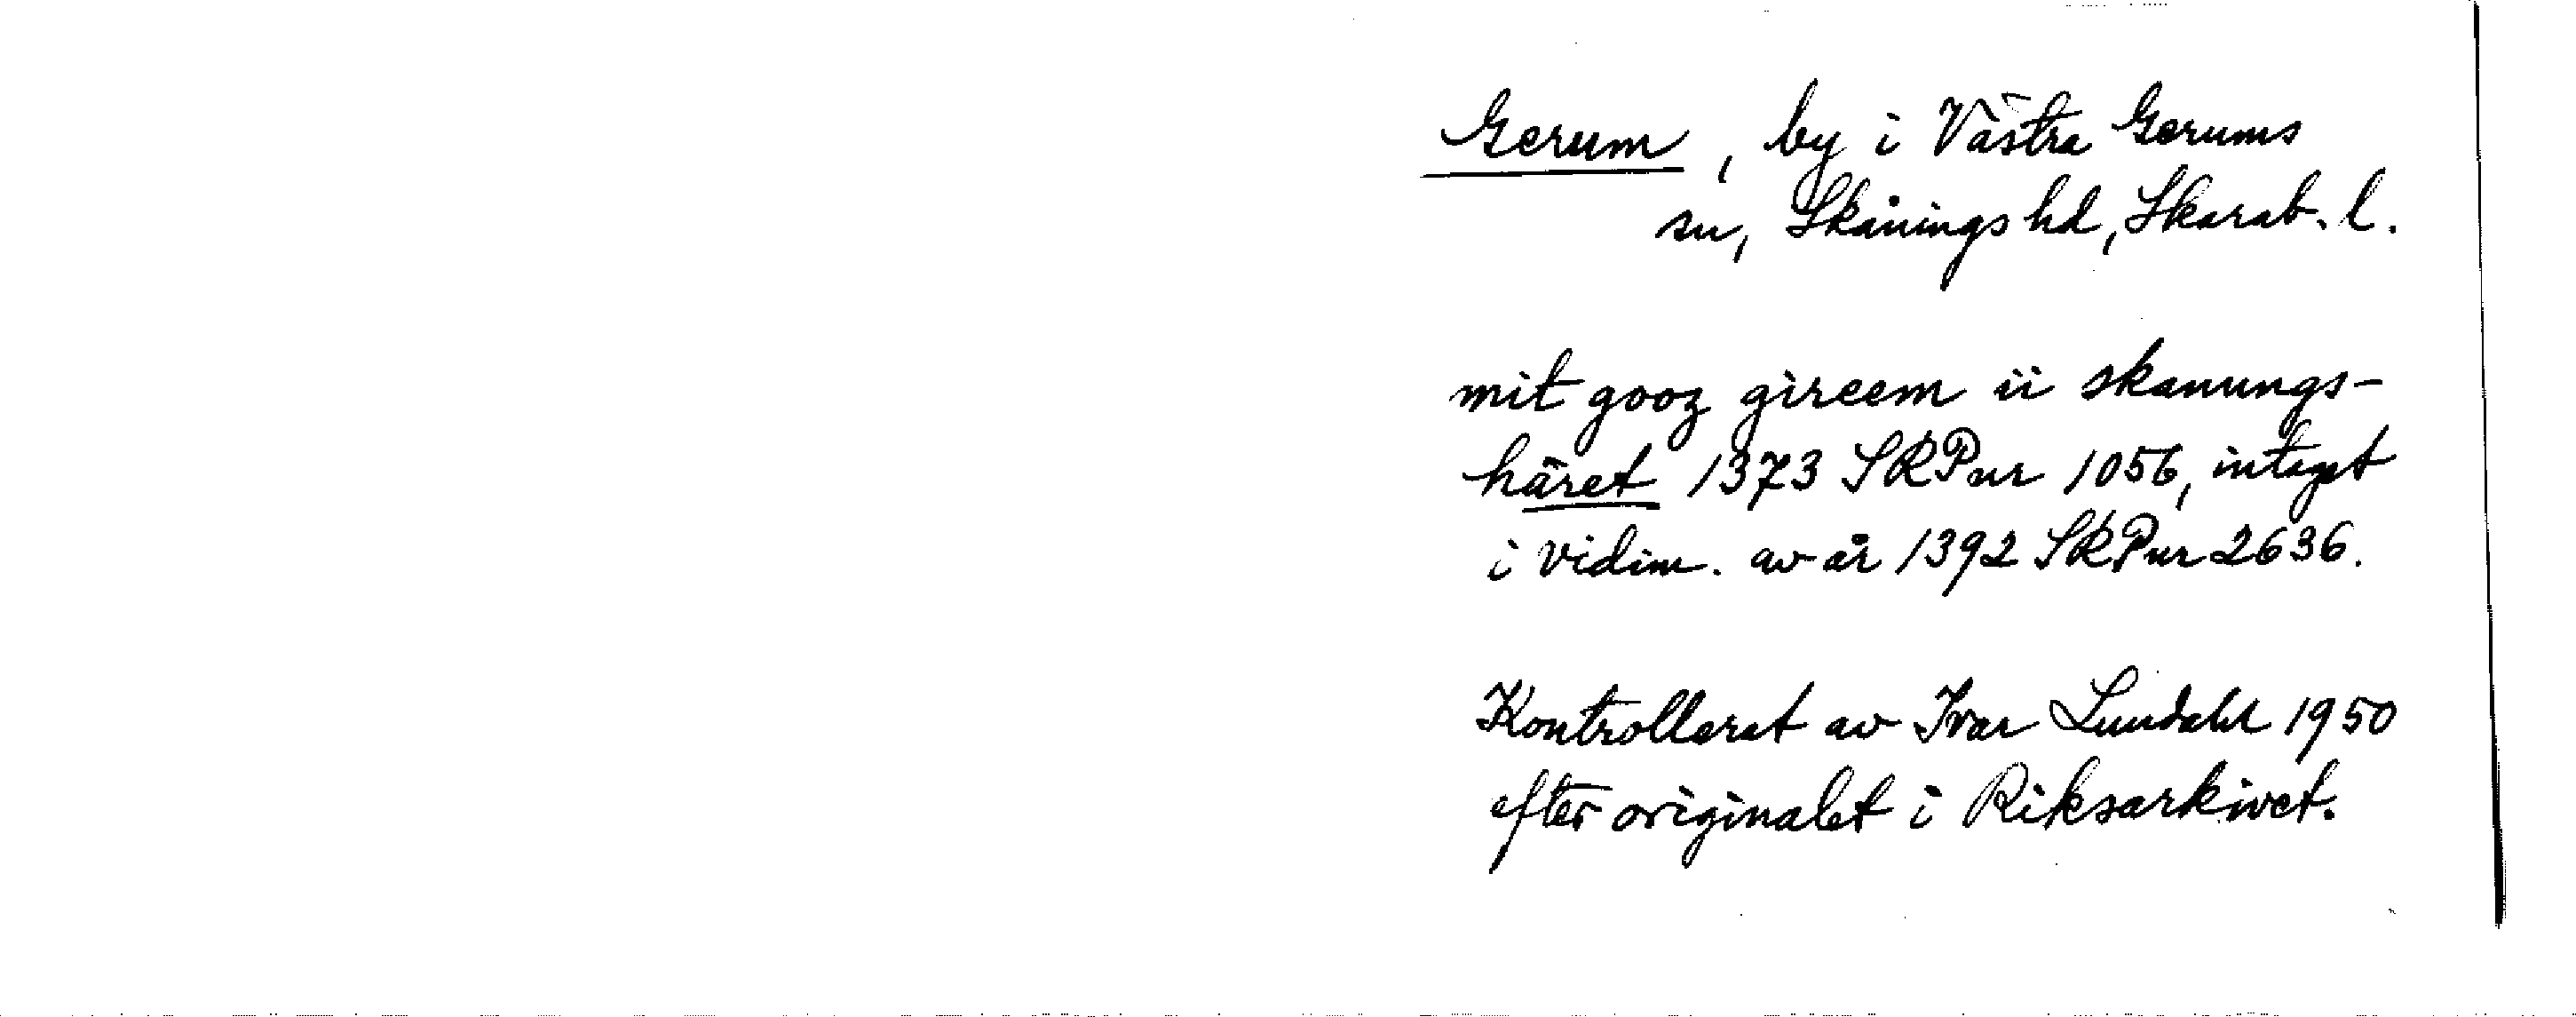 Gerum, by i Västra Gerums
sn, Skånings hd, Skarab. l.
mit gooz gireem ii skanungs-
häret 1373 SRPnr 1056, intaget
i vidim. av år 1392 SRPnr 2636.
Kontrollerat av Ivar Lundahl 1950
efter originalet i Riksarkivet.